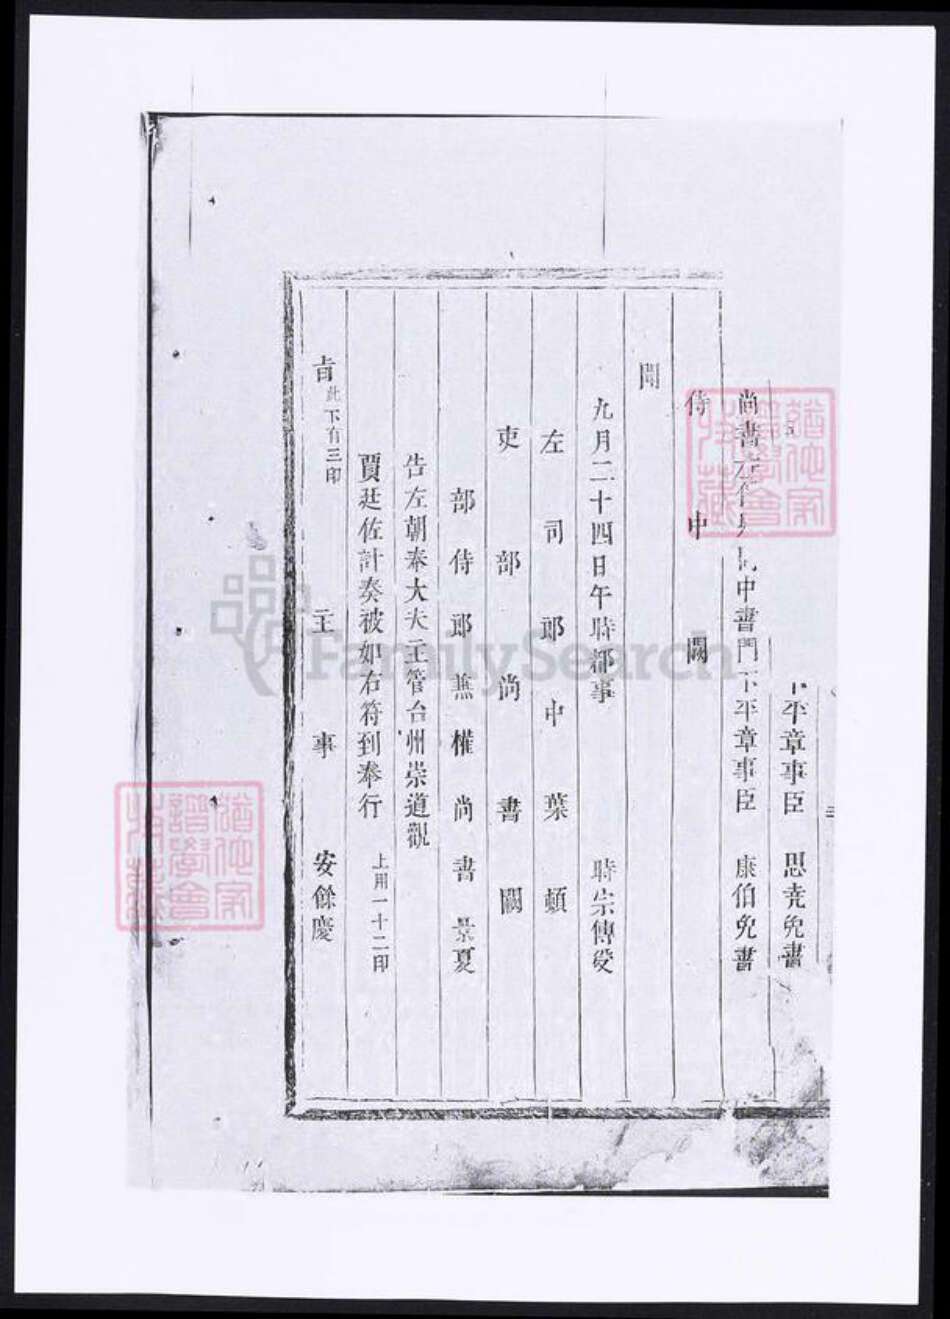 平章事臣 思 免書
尚書 中書門下平章事臣 康伯免書
侍中闕
聞
九月二十四日午時都事 時宗傳受
左司郎中葉顗
吏部尚書闕
部侍郎兼權尚書景夏
告左朝奉大夫主管台州崇道觀
賈廷佐計奏被如右符到奉行 上用一十二印
旨此下有三印 主事 安餘慶
FamilySearch